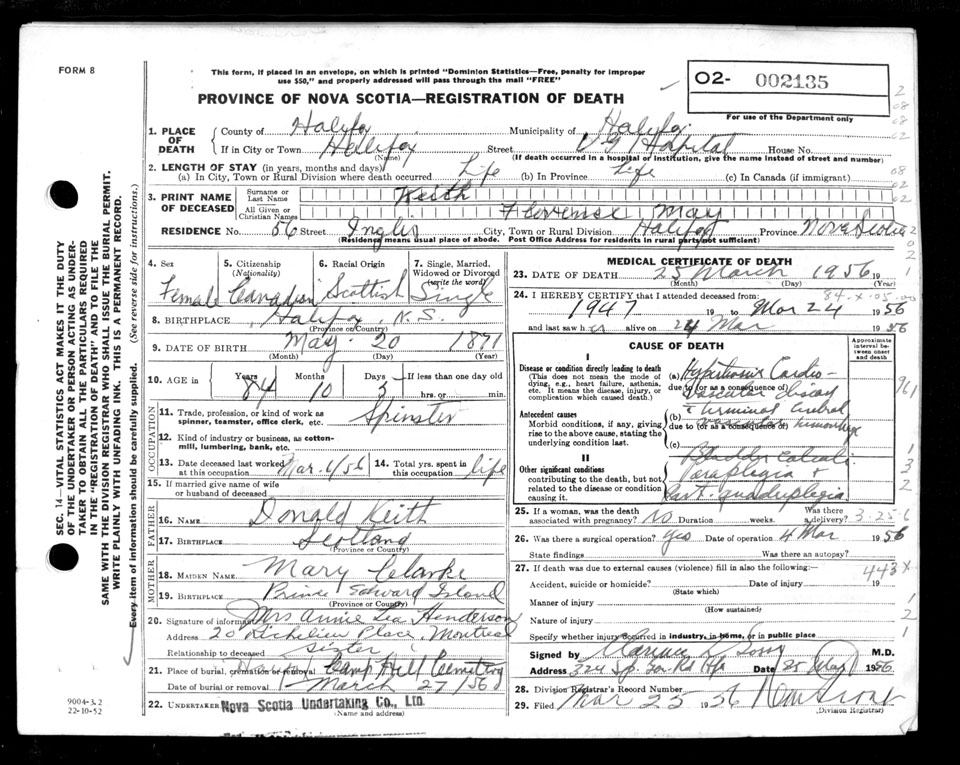 FORM 8
This form, if placed in an envelope, on which is printed "Dominion Statistics—Free, penalty for improper
use $50," and properly addressed will pass through the mail "FREE"
O2- 002135
For use of the Department only
PROVINCE OF NOVA SCOTIA—REGISTRATION OF DEATH
1. PLACE OF DEATH
County of Halifax Municipality of Halifax
If in City or Town Halifax Street V G Hospital House No.
(Name) (If death occurred in a hospital or institution, give the name instead of street and number)
2. LENGTH OF STAY (in years, months and days)
(a) In City, Town or Rural Division where death occurred Life (b) In Province Life (c) In Canada (if immigrant)
3. PRINT NAME OF DECEASED
Surname or Last Name Keith
All Given or Christian Names Florence May
RESIDENCE No. 56 Street Inglis City, Town or Rural Division Halifax Province Nova Scotia
(Residence means usual place of abode. Post Office Address for residents in rural parts not sufficient)
4. Sex Female
5. Citizenship (Nationality) Canadian
6. Racial Origin Scottish
7. Single, Married, Widowed or Divorced (write the word) Single
8. BIRTHPLACE Halifax, N.S.
(Province or Country)
9. DATE OF BIRTH May 20 1871
(Month) (Day) (Year)
10. AGE in Years 84 Months 10 Days 3 If less than one day old
hrs. or min.
OCCUPATION
11. Trade, profession, or kind of work as
spinner, teamster, office clerk, etc. Spinster
12. Kind of industry or business, as cotton-
mill, lumbering, bank, etc.
13. Date deceased last worked
at this occupation Mar. 6/56
14. Total yrs. spent in
this occupation life
15. If married give name of wife
or husband of deceased
FATHER
16. Name Donald Keith
17. BIRTHPLACE Scotland
(Province or Country)
MOTHER
18. MAIDEN NAME Mary Clarke
19. BIRTHPLACE Prince Edward Island
(Province or Country)
20. Signature of informant Mrs Annie Henderson
Address 20 Richelieu Place, Montreal
Relationship to deceased sister
21. Place of burial, cremation or removal Camp Hill Cemetery
Date of burial or removal March 27/56
22. UNDERTAKER Nova Scotia Undertaking Co., Ltd.
(Name and address)
MEDICAL CERTIFICATE OF DEATH
23. DATE OF DEATH 25 March 1956 19
(Month) (Day) (Year)
84-x-05-00
24. I HEREBY CERTIFY that I attended deceased from
1947 19 to Mar 24 1956
and last saw her alive on 24 Mar 1956
CAUSE OF DEATH
Approximate interval between onset and death
I
Disease or condition directly leading to death
(This does not mean the mode of
dying, e.g., heart failure, asthenia,
etc. It means the disease, injury, or
complication which caused death.)
(a) Hypertensive Cardio-
due to (or as a consequence of)
Vascular Disease
Antecedent causes
Morbid conditions, if any, giving
rise to the above cause, stating the
underlying condition last.
(b) + terminal cerebral
due to (or as a consequence of) hemorrhage
(c)
II
Other significant conditions
contributing to the death, but not
related to the disease or condition
causing it.
Bladder Calculi
Paraplegia +
Part. quadriplegia
25. If a woman, was the death
associated with pregnancy? No Duration weeks.
Was there
a delivery?
3-25-6
26. Was there a surgical operation? yes Date of operation 4 Mar 1956
State findings Was there an autopsy?
27. If death was due to external causes (violence) fill in also the following:
443x
Accident, suicide or homicide? Date of injury 19
(State which)
Manner of injury
(How sustained)
Nature of injury
Specify whether injury occurred in industry, in home, or in public place
Signed by M.D.
Address 324 Date 25 Mar 1956
28. Division Registrar's Record Number
29. Filed Mar 25 1956
(Division Registrar)
SEC. 14—VITAL STATISTICS ACT MAKES IT THE DUTY
OF THE UNDERTAKER OR PERSON ACTING AS UNDER-
TAKER TO OBTAIN ALL THE PARTICULARS REQUIRED
IN THE "REGISTRATION OF DEATH" AND TO FILE THE
SAME WITH THE DIVISION REGISTRAR WHO SHALL ISSUE THE BURIAL PERMIT.
WRITE PLAINLY WITH UNFADING INK. THIS IS A PERMANENT RECORD.
Every item of information should be carefully supplied. (See reverse side for instructions.)
9004-3.2
22-10-52